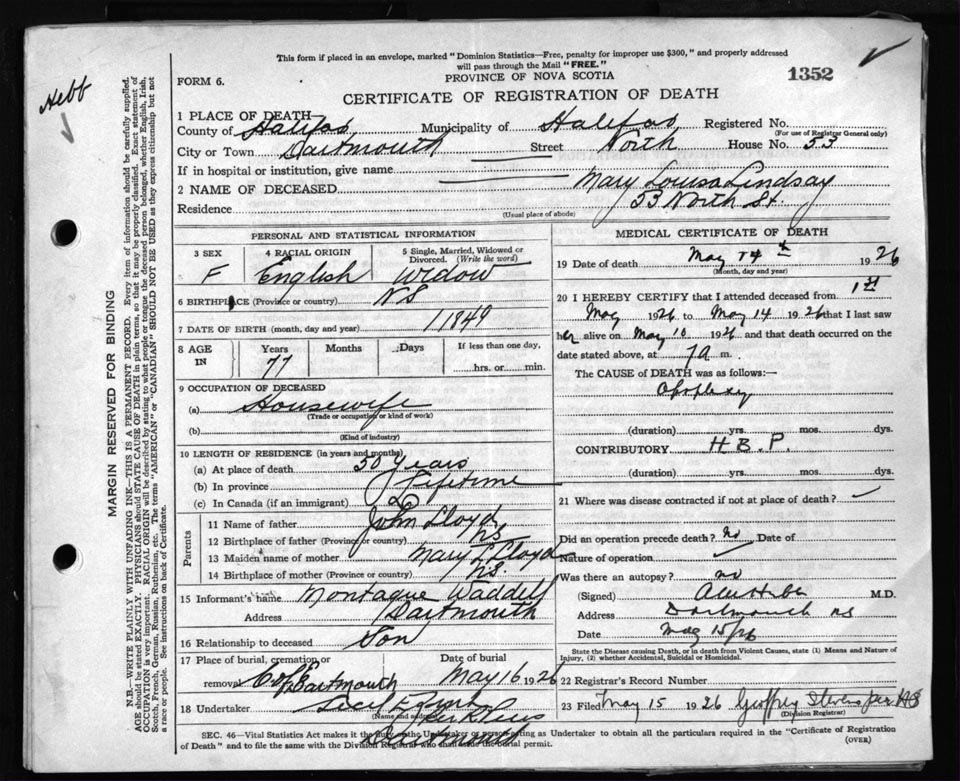 This form if placed in an envelope, marked "Dominion Statistics—Free, penalty for improper use $300," and properly addressed
will pass through the Mail "FREE."
FORM 6.
PROVINCE OF NOVA SCOTIA
1352
Hebb
CERTIFICATE OF REGISTRATION OF DEATH
1 PLACE OF DEATH
County of Halifax Municipality of Halifax Registered No.
(For use of Registrar General only)
City or Town Dartmouth Street North House No. 53
If in hospital or institution, give name
2 NAME OF DECEASED Mary Louisa Lindsay
Residence 53 North St.
(Usual place of abode)
PERSONAL AND STATISTICAL INFORMATION
3 SEX F
4 RACIAL ORIGIN English
5 Single, Married, Widowed or Divorced. (Write the word) Widow
6 BIRTHPLACE (Province or country) NS
7 DATE OF BIRTH (month, day and year) 1849
8 AGE IN Years 77 Months Days If less than one day, hrs. or min.
9 OCCUPATION OF DECEASED
(a) Housewife
(Trade or occupation or kind of work)
(b)
(Kind of industry)
10 LENGTH OF RESIDENCE (in years and months)
(a) At place of death 50 Years
(b) In province Lifetime
(c) In Canada (if an immigrant)
Parents
11 Name of father John Lloyd
12 Birthplace of father (Province or country) NS
13 Maiden name of mother Mary L Lloyd
14 Birthplace of mother (Province or country) N.S.
15 Informant's name Montague Waddell
Address Dartmouth
16 Relationship to deceased Son
17 Place of burial, cremation or removal Dartmouth
Date of burial May 16 1926
18 Undertaker
(Name and address)
Dartmouth
MEDICAL CERTIFICATE OF DEATH
19 Date of death May 14th 1926
(Month, day and year)
20 I HEREBY CERTIFY that I attended deceased from 1st
May 1926 to May 14 1926 that I last saw
her alive on May 10 1926 and that death occurred on the
date stated above, at 7 a m.
The CAUSE of DEATH was as follows:—
Apoplexy
(duration) yrs. mos. dys.
CONTRIBUTORY H.B.P.
(duration) yrs. mos. dys.
21 Where was disease contracted if not at place of death?
Did an operation precede death? No Date of
Nature of operation
Was there an autopsy? no
(Signed) M.D.
Address Dartmouth NS
Date May 15/26
State the Disease causing Death, or in death from Violent Causes, state (1) Means and Nature of
Injury, (2) whether Accidental, Suicidal or Homicidal.
22 Registrar's Record Number
23 Filed May 15 1926 Geoffrey Stevens per
(Division Registrar)
SEC. 46—Vital Statistics Act makes it the duty of the Undertaker or person acting as Undertaker to obtain all the particulars required in the "Certificate of Registration
of Death" and to file the same with the Division Registrar who shall issue the burial permit.
(OVER)
MARGIN RESERVED FOR BINDING
N.B.—WRITE PLAINLY WITH UNFADING INK—THIS IS A PERMANENT RECORD. Every item of information should be carefully supplied.
AGE should be stated EXACTLY. PHYSICIANS should STATE CAUSE OF DEATH in plain terms, so that it may be properly classified. Exact statement of
OCCUPATION is very important. RACIAL ORIGIN will be described by stating to what people or tongue the deceased person belonged, whether English, Irish,
Scotch, French, German, Russian, Ruthenian, etc. The terms "AMERICAN" or "CANADIAN" SHOULD NOT BE USED as they express citizenship but not
a race or people. See instructions on back of Certificate.